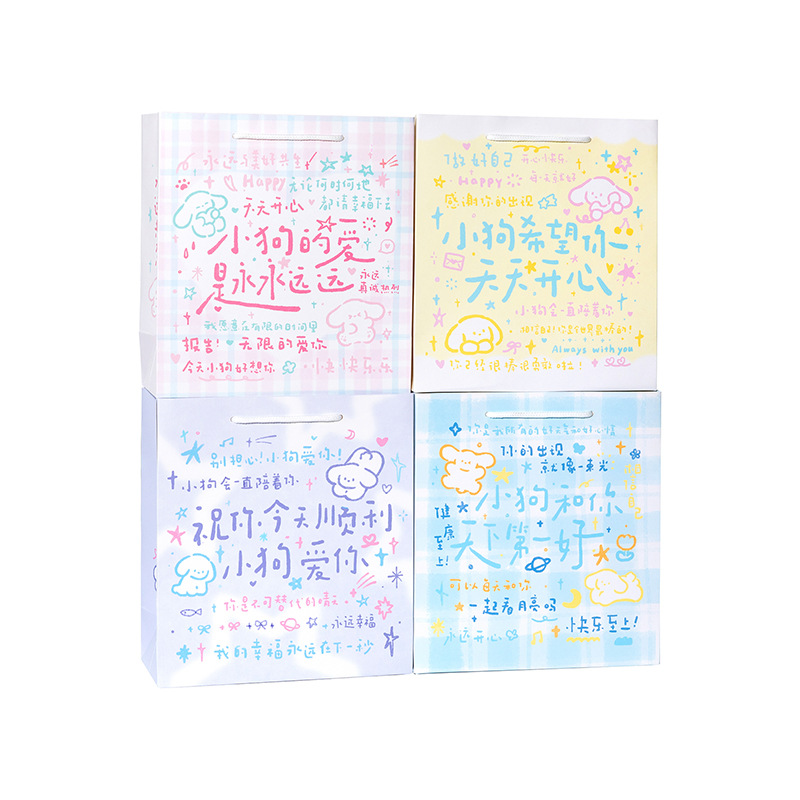 永远美好共生
Happy 无论何时何地
都请幸福下去
天天开心
小狗的爱
是永永远远
永远
真诚热烈
我愿意在有限的时间里
报告！无限的爱你
今天小狗好想你
小快快乐乐
做好自己 开心快乐
Happy 每天就好
感谢你的出现
小狗希望你
天天开心
小狗会一直陪着你
相信自己你是世界最棒的！
Always with you
你已经很棒很勇敢啦！
别担心！小狗爱你！
小狗会一直陪着你
祝你今天顺利
小狗爱你
你是不可替代的晴天
永远幸福
我的幸福永远在下一秒
你是我所有的好运气和好心情
你的出现
就像一束光
相信自己
小狗和你
天下第一好
健康至上！
可以每天和你
一起看月亮吗
永远开心
快乐至上！